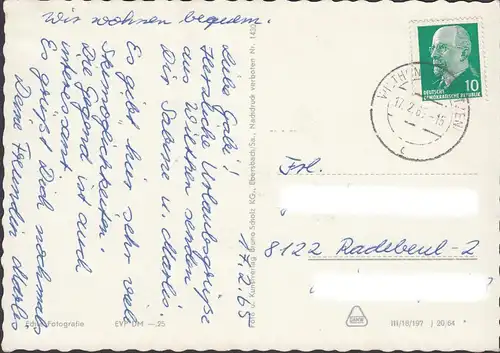 Wir wohnen bequem.
17.2.65
Liebe Gabi!
Herzliche Urlaubsgrüße
aus Wilthen senden
Dir Sabine u. Marlis.
Es gibt hier sehr viel
Skimöglichkeiten.
Die Gegend ist auch
interessant.
Es grüßt Dich nochmals
Deine Freundin Marlis
Echte Fotografie
EVP DM —.25
Foto u. Kunstverlag Bruno Scholz KG., Ebersbach/Sa., Nachdruck verboten Nr.
DEUTSCHE
DEMOKRATISCHE REPUBLIK
10
17.2.65-16
c
Frl.
8122 Radebeul-2
III/18/197 J 20/64